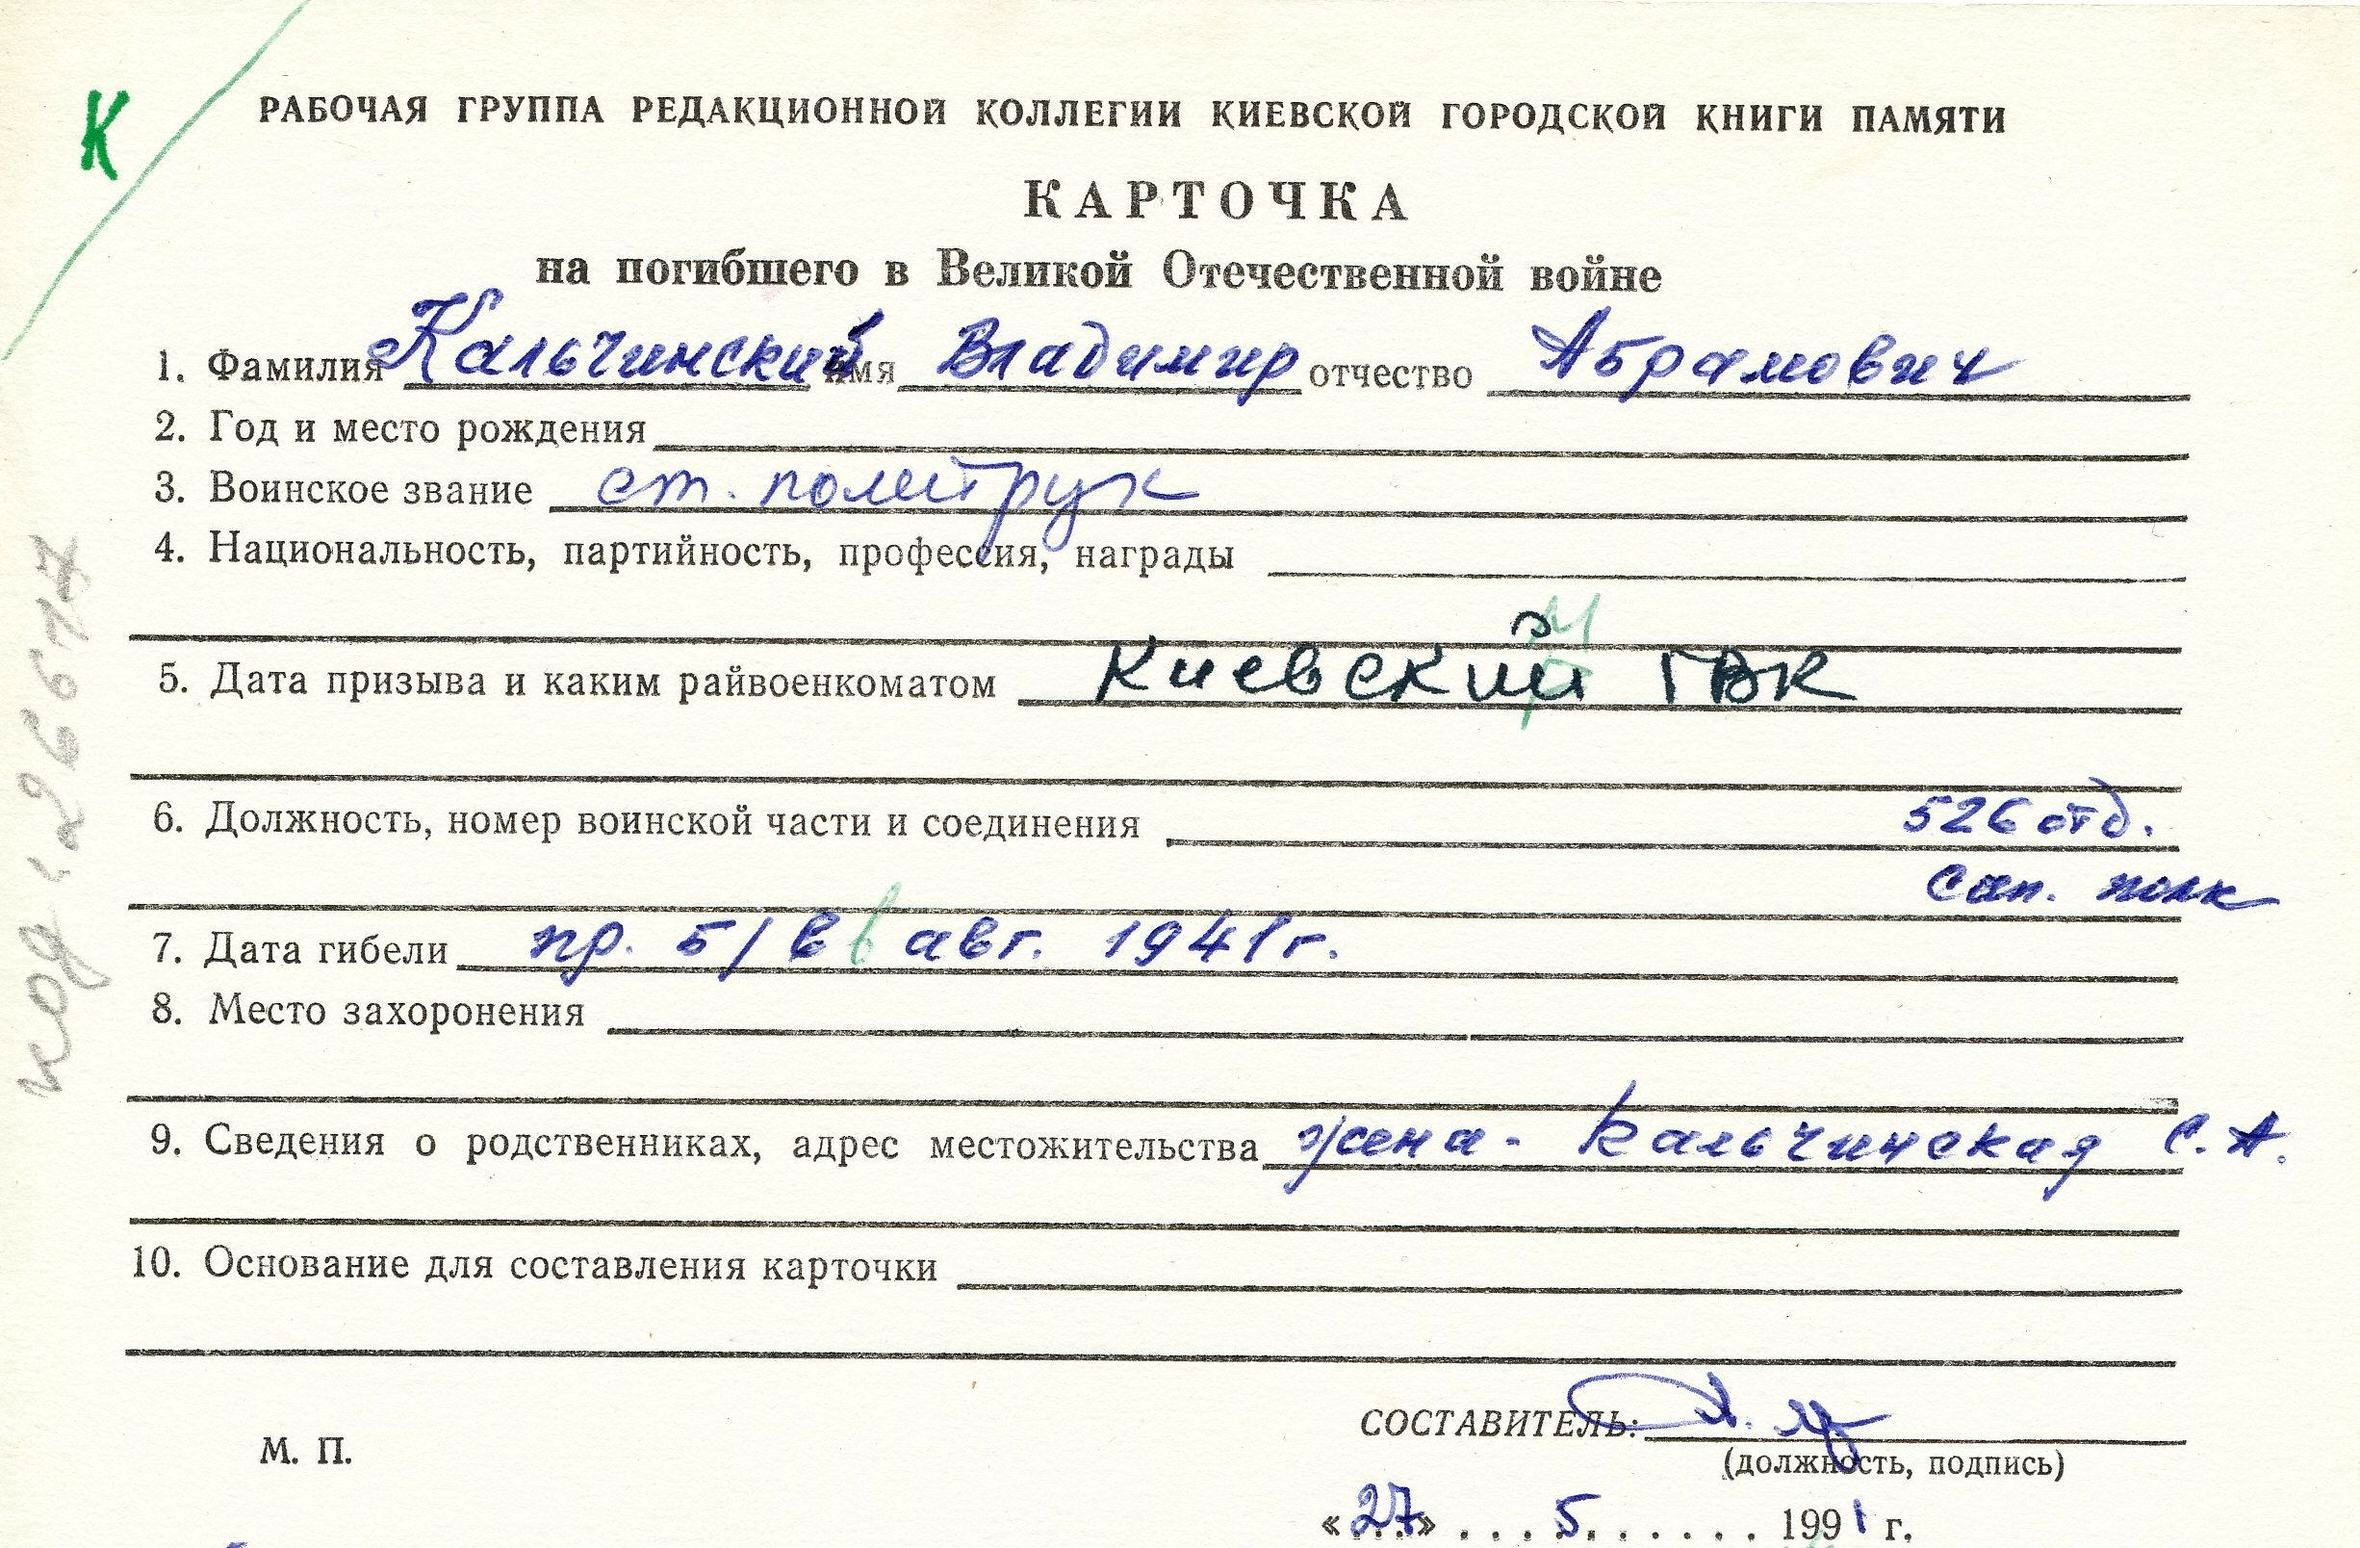 К
РАБОЧАЯ ГРУППА РЕДАКЦИОННОЙ КОЛЛЕГИИ КИЕВСКОЙ ГОРОДСКОЙ КНИГИ ПАМЯТИ
КАРТОЧКА
на погибшего в Великой Отечественной войне
1. Фамилия Кальчинский имя Владимир отчество Абрамович
2. Год и место рождения
3. Воинское звание ст. политрук
4. Национальность, партийность, профессия, награды
5. Дата призыва и каким райвоенкоматом Киевский ГВК
6. Должность, номер воинской части и соединения 526 отд.
сап. полк
7. Дата гибели пр. б/в в авг. 1941 г.
8. Место захоронения
9. Сведения о родственниках, адрес местожительства жена - Кальчинская С. А.
10. Основание для составления карточки
СОСТАВИТЕЛЬ:
М. П.
(должность, подпись)
«27» . . . 5 . . . . . . 1991 г.
код